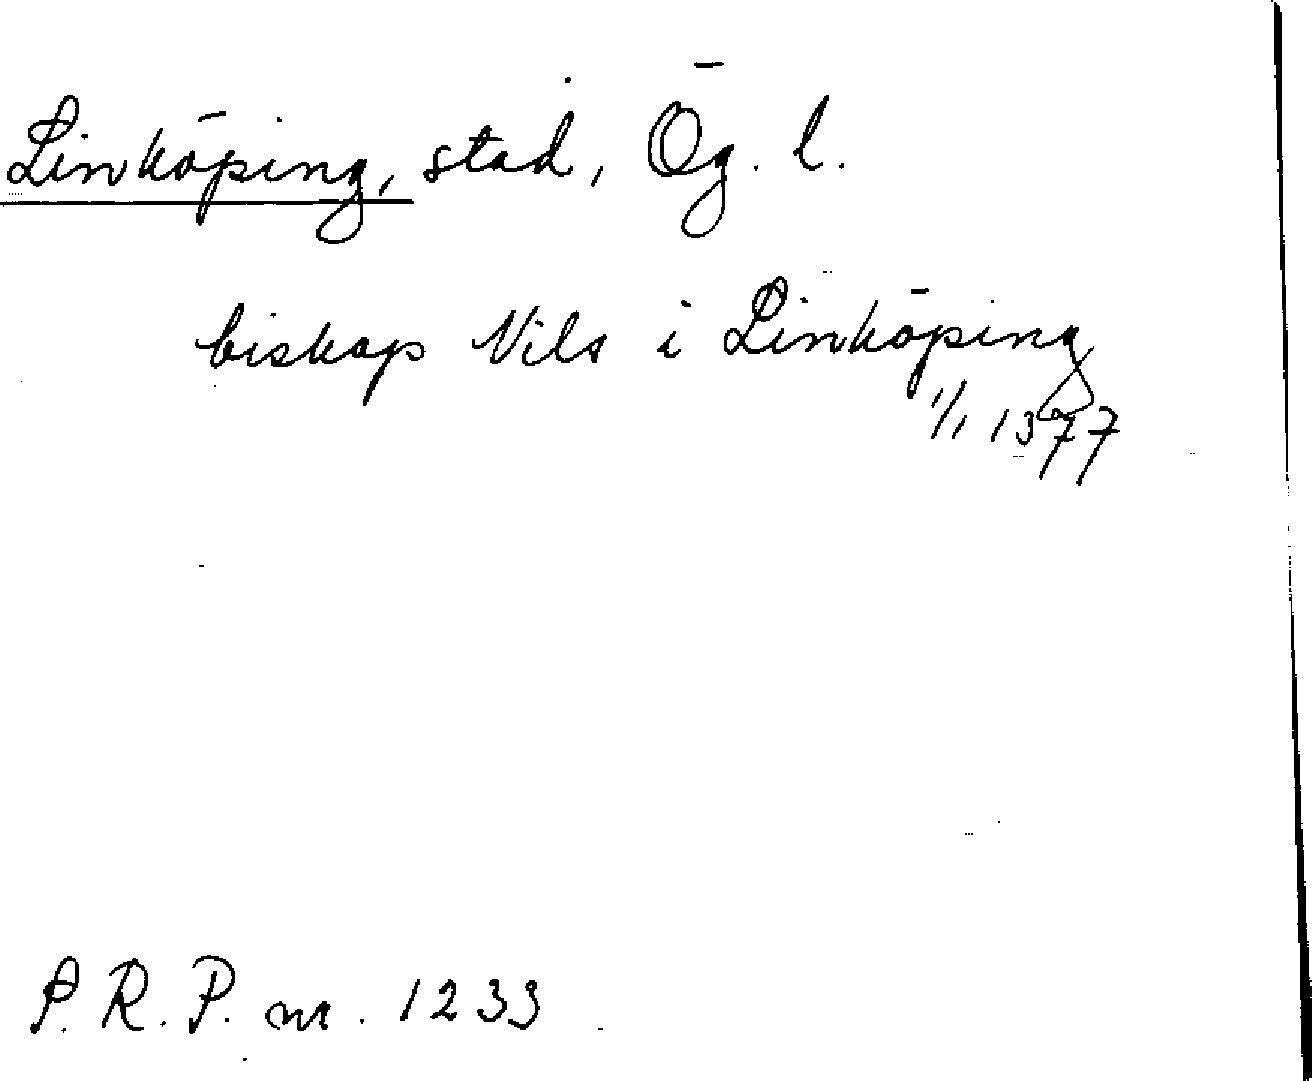 Linköping, stad, Ög. l.
biskop Nils i Linköping
1/1 1377
S. R. P. nr. 1233